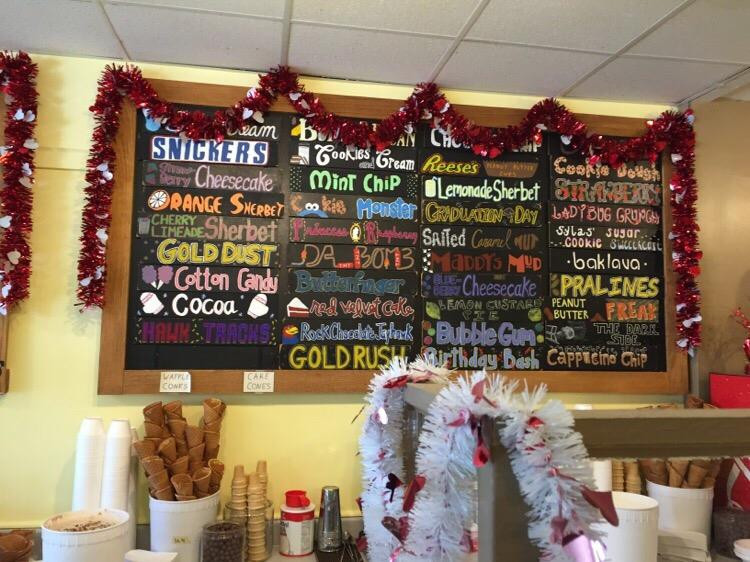 Cream
SNICKERS
Cheesecake
ORANGE SHERBET
CHERRY LIMEADE Sherbet
GOLD DUST
Cotton Candy
COCOA
HAWK TRACKS
Cookies and Cream
Mint CHIP
Cookie Monster
Princess Raspberry
DA BOMB
Butterfinger
red velvet cake
Rock Chocolate Jayhawk
GOLD RUSH
REESE'S PEANUT BUTTER CUPS
Lemonade Sherbet
GRADUATION DAY
Salted Caramel MUD
MADDY'S MUD
BLUE-BERRY Cheesecake
LEMON CUSTARD PIE
Bubble Gum
Birthday Bash
Cookie Dough
STRAWBERRY
LADYBUG CRUNCH
sylas' sugar cookie
baklava
PRALINES
PEANUT BUTTER FREAK
THE DARK SIDE
Cappuccino Chip
WAFFLE CONES
CAKE CONES